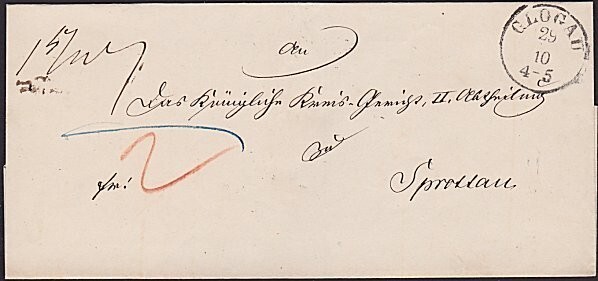 An
GLOGAU
29
10
4-5
Das Königliche Kreis-Gericht, II. Abtheilung
zu
fr:
2
Sprottau